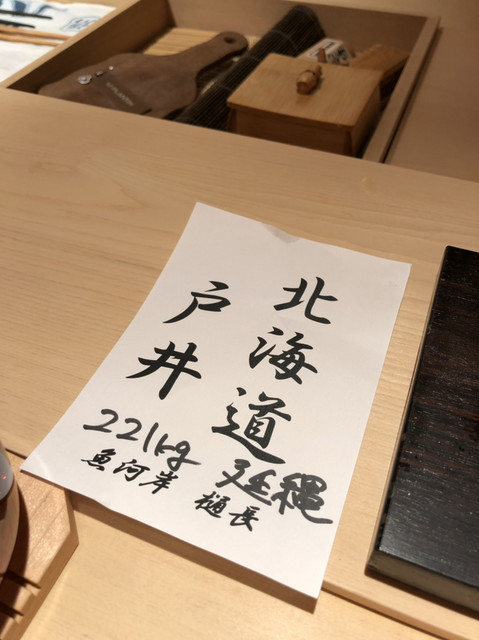 北海道
戸井
延縄
221kg
魚河岸 樋長